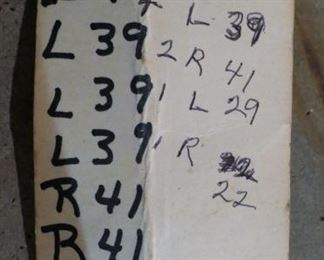 L 39
L 39
L 39
R 41
R 41
2
L 39
2 R 41
1 L 29
1 R
22